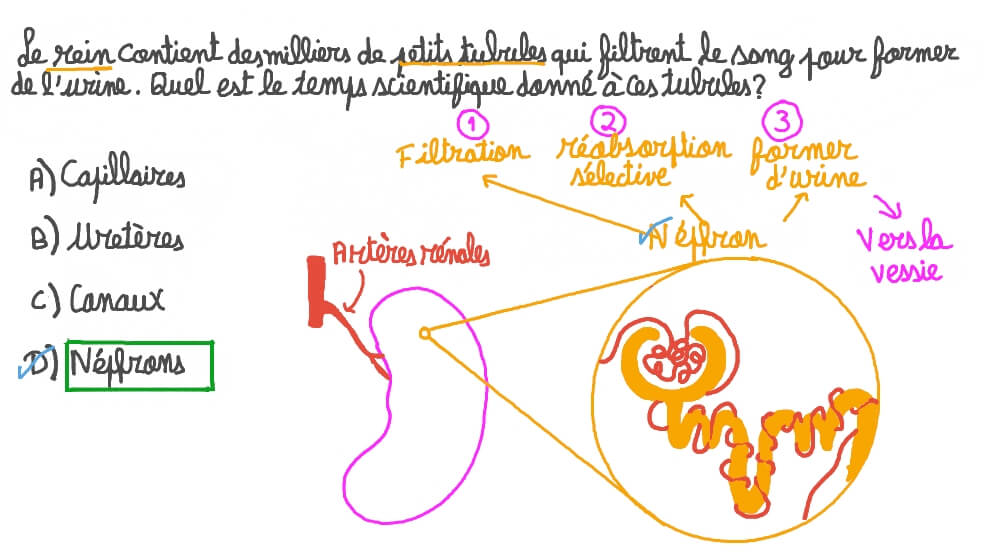 Le rein contient des milliers de petits tubules qui filtrent le sang pour former
de l'urine. Quel est le temps scientifique donné à ces tubules?
1 2 3
Filtration réabsorption sélective former d'urine
A) Capillaires
B) Uretères
C) Canaux
D) Néffrons
Néffron
Vers la
vessie
Artères rénales